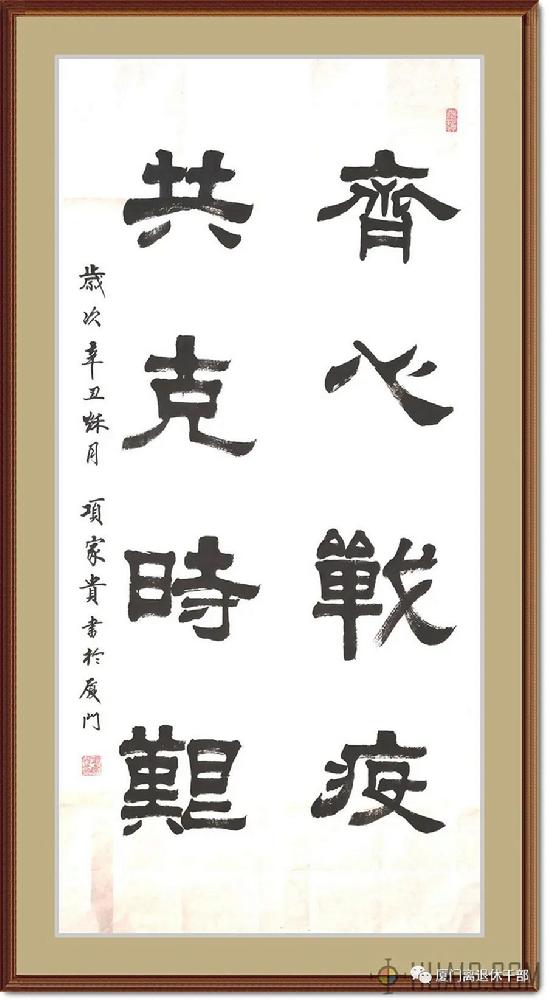 齊心戰疫
共克時艱
歲次辛丑秌月 項家貴書於厦門
厦门离退休干部